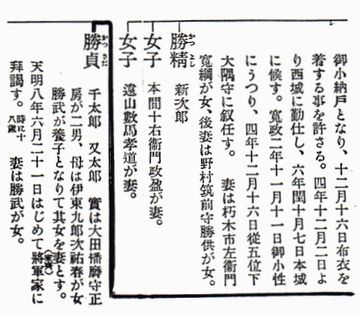 御小納戸となり、十二月十六日布衣を
着する事を許さる。四年十二月二日よ
り西城に勤仕し、六年閏十月七日本城
に候す。寛政二年十一月十一日御小性
にうつり、四年十二月十六日從五位下
大隅守に叙任す。 妻は朽木市左衞門
寛綱が女、後妻は野村筑前守勝供が女。
勝精 新次郎
女子 本間十右衞門政盈が妻。
女子 遠山數馬孝道が妻。
勝貞 千太郎 又太郎 實は大田播磨守正
かつさだ
房が二男、母は伊東九郎次祐春が女
勝武が養子となりて其女を妻とす。
天明八年六月二十一日はじめて將軍家に
(家齊)
拜謁す。時に十八歳 妻は勝武が女。